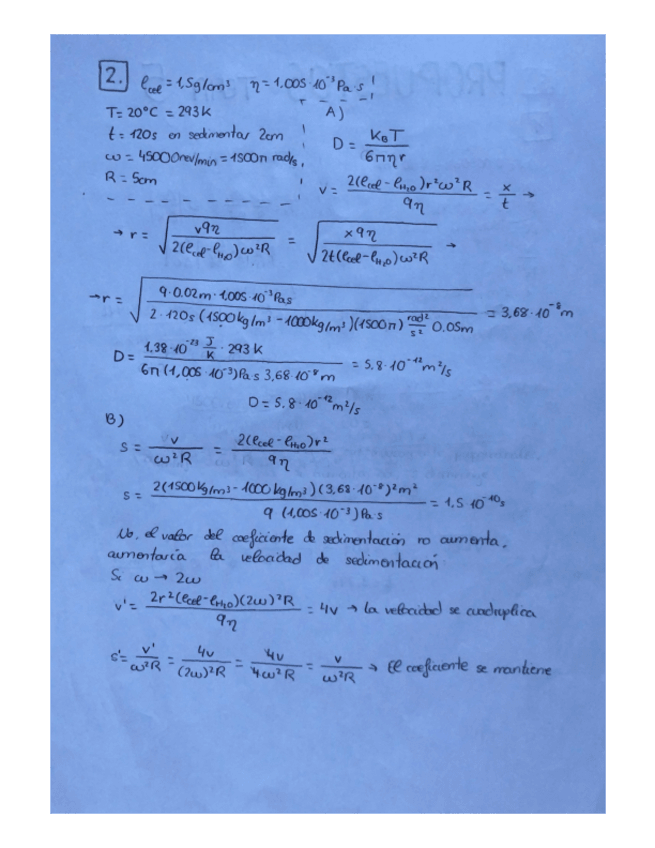 2. ρcel = 1,5g/cm³ η = 1.005·10⁻³ Pa·s
T = 20ºC = 293K A)
t = 120s en sedimentar 2cm D = K_B T / 6πηr
ω = 45000rev/min = 1500π rad/s
R = 5cm v = 2(ρcel - ρH₂O)r²ω²R / 9η = x/t →
→ r = √(v9η / 2(ρcel - ρH₂O)ω²R) = √(x9η / 2t(ρcel - ρH₂O)ω²R) →
→ r = √(9·0.02m·1.005·10⁻³Pa s / 2·120s (1500kg/m³ - 1000kg/m³)(1500π) rad²/s² 0.05m) = 3,68·10⁻⁸m
D = 1.38·10⁻²³ J/K · 293 K / 6π(1,005·10⁻³)Pa s 3,68·10⁻⁸m = 5.8·10⁻¹²m²/s
D = 5.8·10⁻¹²m²/s
B)
s = v / ω²R = 2(ρcel - ρH₂O)r² / 9η
s = 2(1500kg/m³ - 1000kg/m³)(3,68·10⁻⁸)²m² / 9 (1,005·10⁻³)Pa·s = 1,5 10⁻¹⁰s
No, el valor del coeficiente de sedimentación no aumenta,
aumentaría la velocidad de sedimentación
Si ω → 2ω
v' = 2r²(ρcel - ρH₂O)(2ω)²R / 9η = 4v → la velocidad se cuadruplica
s' = v' / ω²R = 4v / (2ω)²R = 4v / 4ω²R = v / ω²R → El coeficiente se mantiene